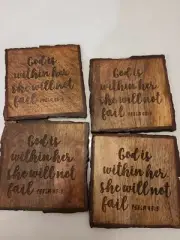 God is
within her
she will not
fail PSALM 46:5
God is
within her
she will not
fail PSALM 46:5
God is
within her
she will not
fail PSALM 46:5
God is
within her
she will not
fail PSALM 46:5